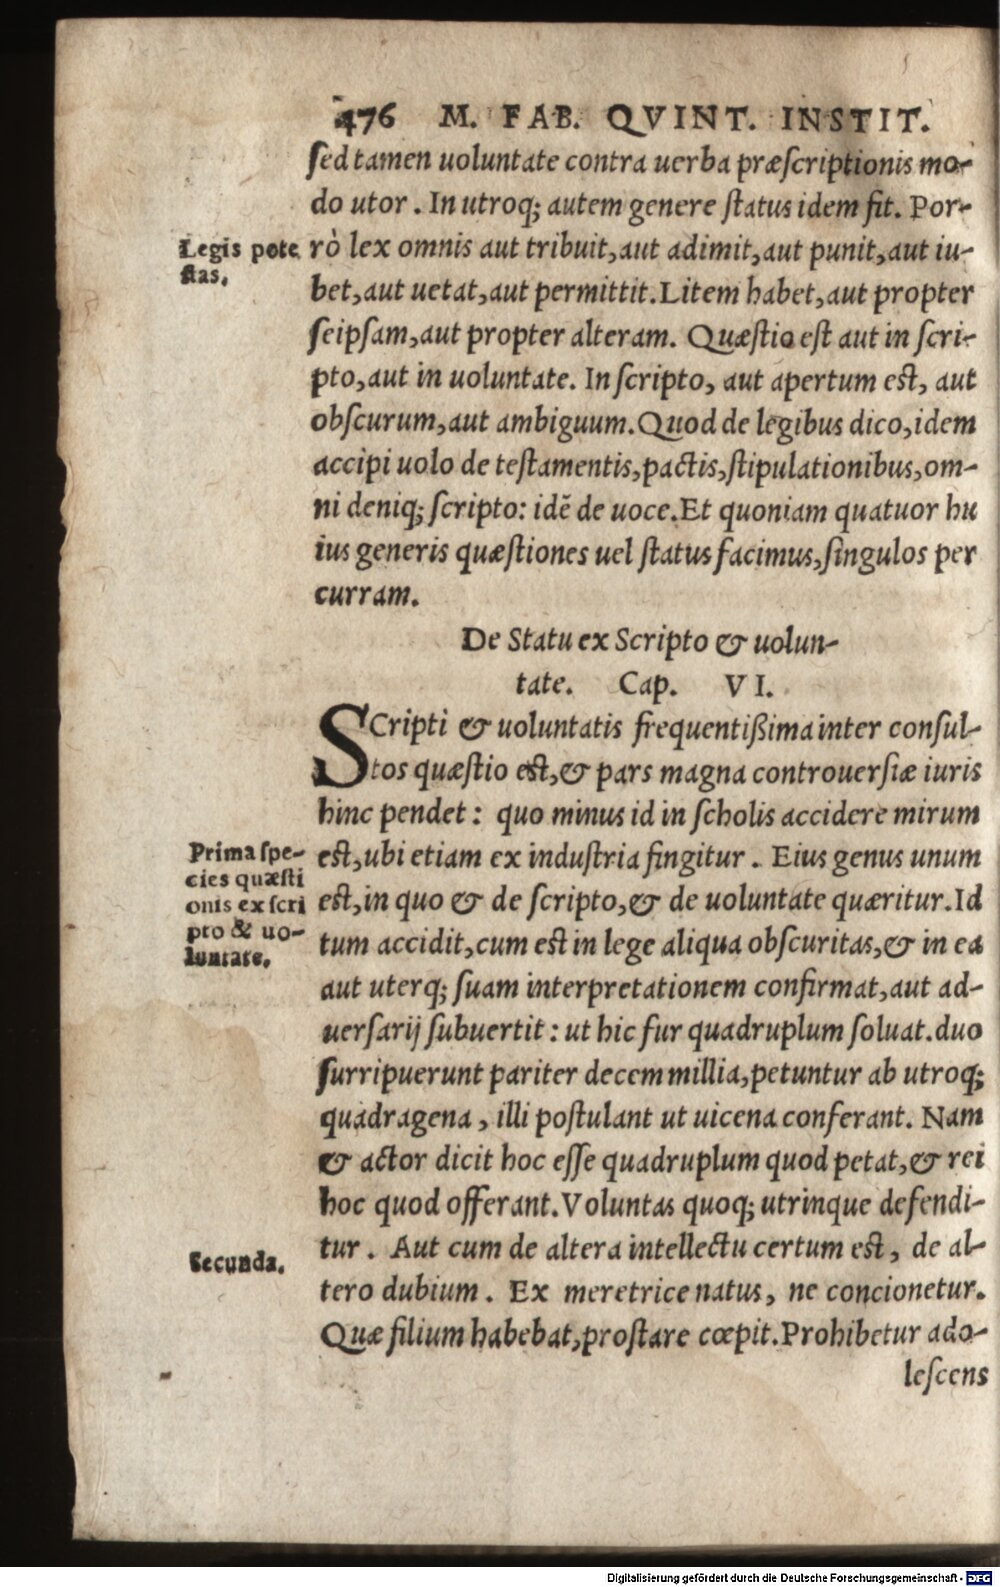 476 M. FAB. QVINT. INSTIT.
ſed tamen uoluntate contra uerba præſcriptionis mo-
do utor. In utroq; autem genere ſtatus idem fit. Por-
Legis pote
ſtas.
rò lex omnis aut tribuit, aut adimit, aut punit, aut iu-
bet, aut uetat, aut permittit. Litem habet, aut propter
ſeipſam, aut propter alteram. Quæſtio eſt aut in ſcri-
pto, aut in uoluntate. In ſcripto, aut apertum eſt, aut
obſcurum, aut ambiguum. Quod de legibus dico, idem
accipi uolo de teſtamentis, pactis, ſtipulationibus, om-
ni deniq; ſcripto: idē de uoce. Et quoniam quatuor hu
ius generis quæſtiones uel ſtatus facimus, ſingulos per
curram.
De Statu ex Scripto & uolun-
tate. Cap. VI.
SCripti & uoluntatis frequentißima inter conſul-
tos quæſtio eſt, & pars magna controuerſiæ iuris
hinc pendet: quo minus id in ſcholis accidere mirum
Prima ſpe-
cies quæſti
onis ex ſcri
pto & uo-
luntate.
eſt, ubi etiam ex induſtria fingitur. Eius genus unum
eſt, in quo & de ſcripto, & de uoluntate quæritur. Id
tum accidit, cum eſt in lege aliqua obſcuritas, & in ea
aut uterq; ſuam interpretationem confirmat, aut ad-
uerſarij ſubuertit: ut hic fur quadruplum ſoluat. duo
ſurripuerunt pariter decem millia, petuntur ab utroq;
quadragena, illi poſtulant ut uicena conferant. Nam
& actor dicit hoc eſſe quadruplum quod petat, & rei
hoc quod offerant. Voluntas quoq; utrinque defendi-
Secunda.
tur. Aut cum de altera intellectu certum eſt, de al-
tero dubium. Ex meretrice natus, ne concionetur.
Quæ filium habebat, proſtare cœpit. Prohibetur ado-
leſcens
Digitalisierung gefördert durch die Deutsche Forschungsgemeinschaft - DFG